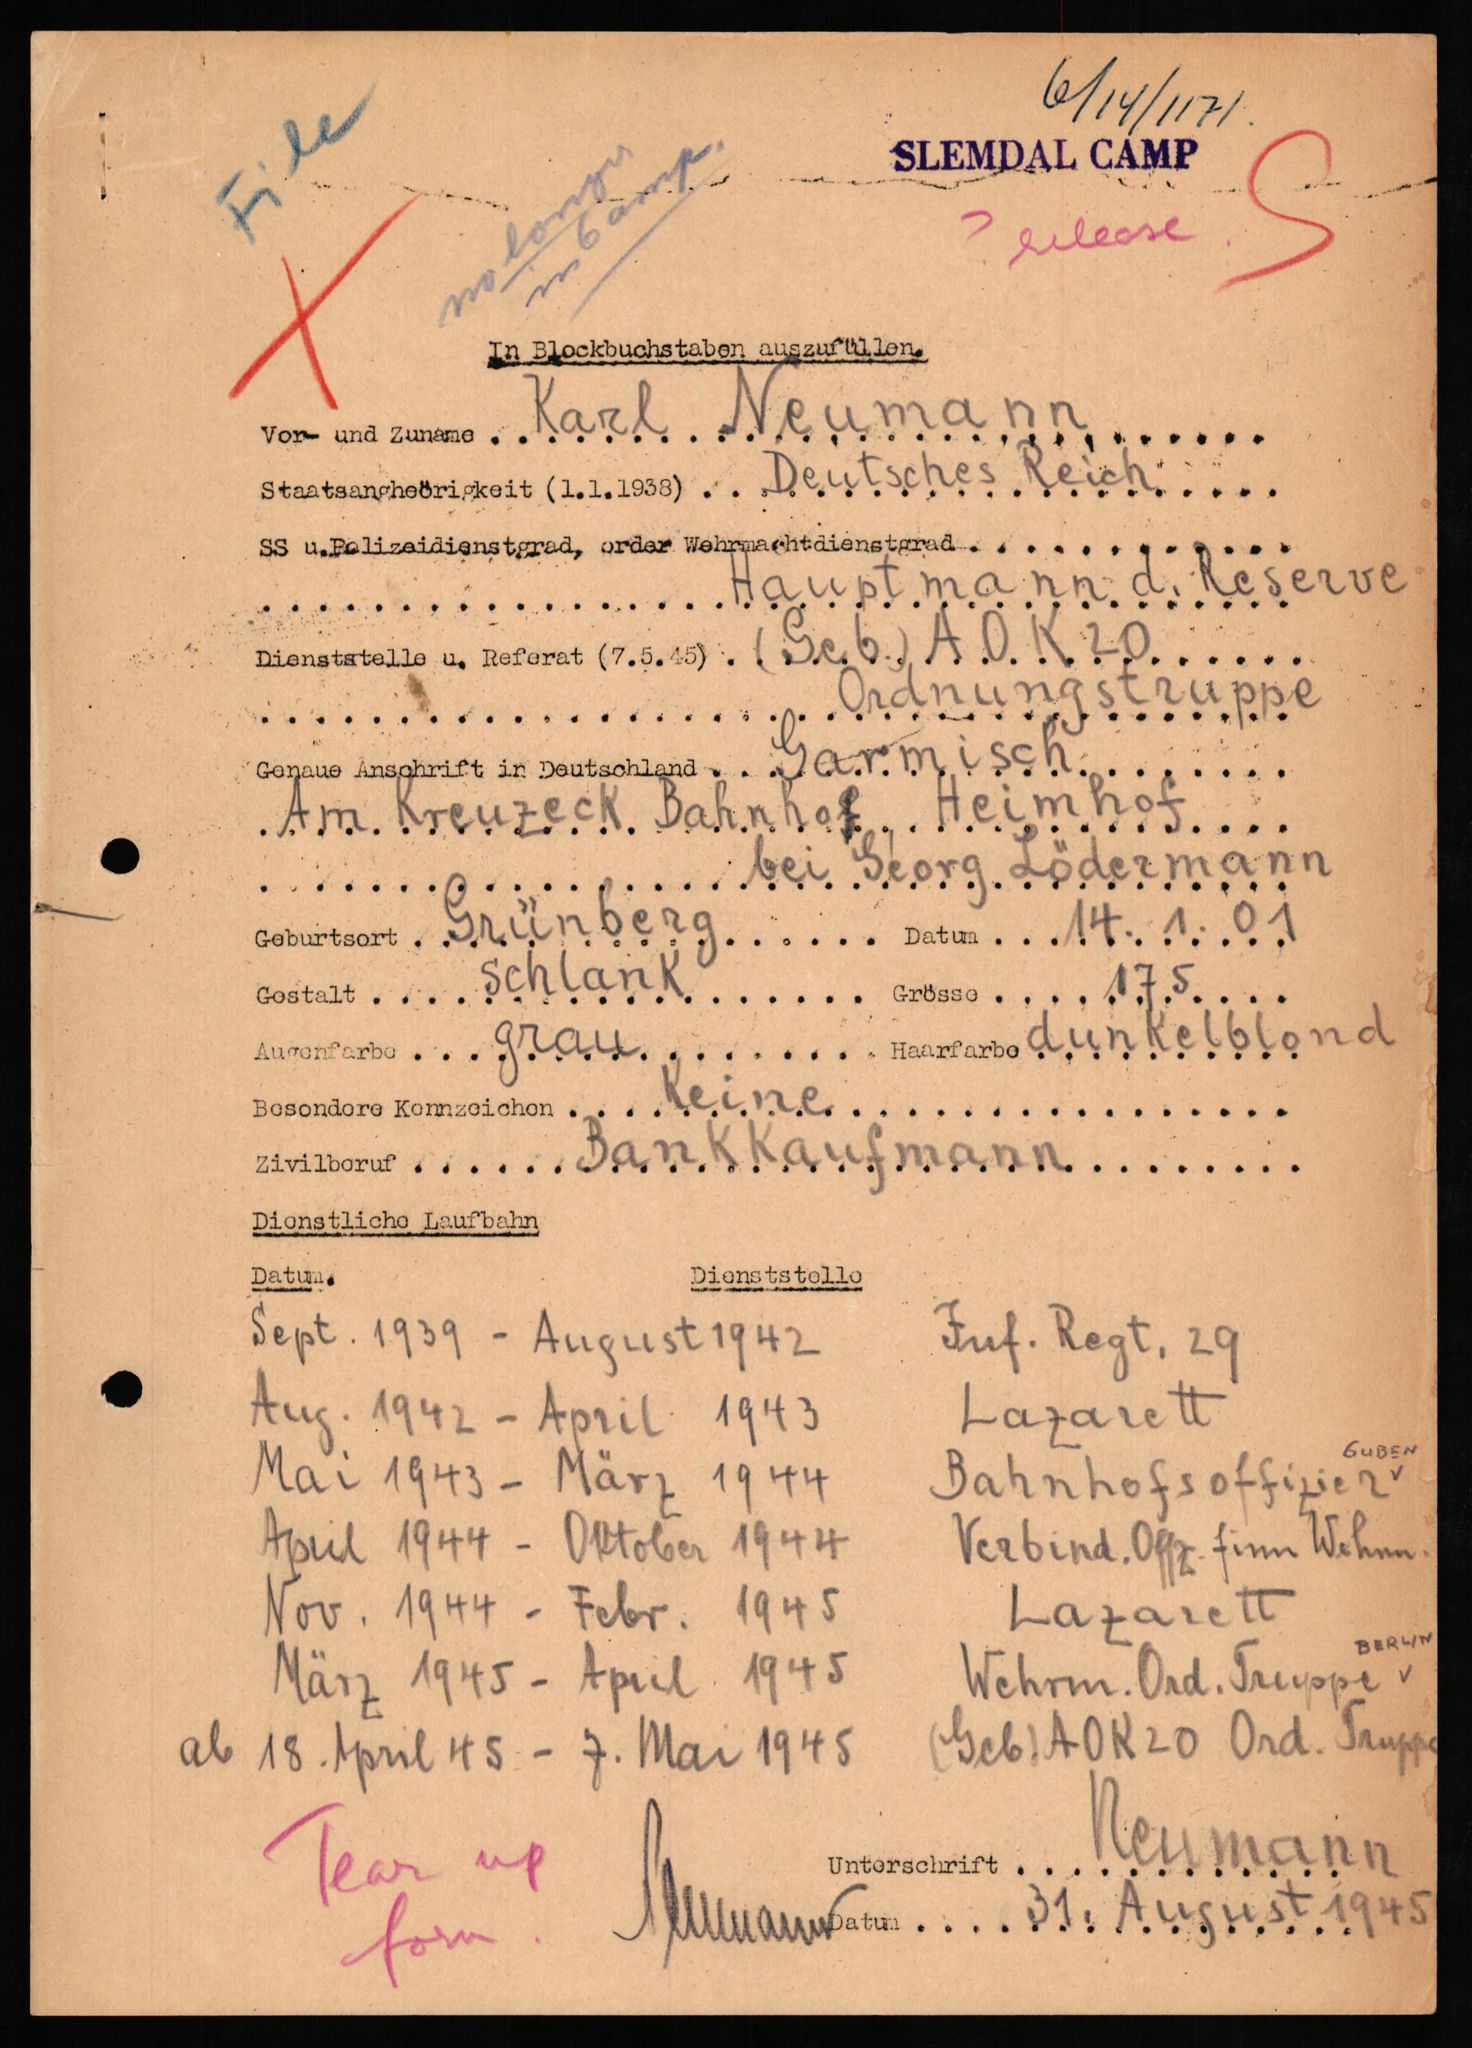 6/14/1171.
File
SLEMDAL CAMP
no longer
in camp.
? release. S
X
In Blockbuchstaben auszufüllen.
Vor- und Zuname . . Karl Neumann
Staatsangheörigkeit (1.1.1938) . . Deutsches Reich
SS u.Polizeidienstgrad, order Wehrmachtdienstgrad . . .
Hauptmann d. Reserve
Dienststelle u. Referat (7.5.45) . (Geb.) A.O.K 20
Ordnungstruppe
Genaue Anschrift in Deutschland . . Garmisch
Am Kreuzeck Bahnhof, Heimhof
bei Georg Lödermann
Geburtsort . Grünberg . . . Datum . . . 14. 1. 01
Gestalt . . . schlank . . . Grösse . . . 175
Augenfarbe . . . grau . . . Haarfarbe dunkelblond
Besondere Kennzeichen . . . Keine
Zivilberuf . . . Bankkaufmann
Dienstliche Laufbahn
Datum. Dienststelle
Sept. 1939 - August 1942 Inf. Regt. 29
Aug. 1942 - April 1943 Lazarett
GUBEN
Mai 1943 - März 1944 Bahnhofsoffizier v
April 1944 - Oktober 1944 Verbind. Offz. finn Wehrm.
Nov. 1944 - Febr. 1945 Lazarett
BERLIN
März 1945 - April 1945 Wehrm. Ord. Truppe v
ab 18. April 45 - 7. Mai 1945 (Geb) AOK 20 Ord. Truppe
Tear up
form.
Unterschrift . . Neumann
Neumann
Datum . . . . 31. August 1945